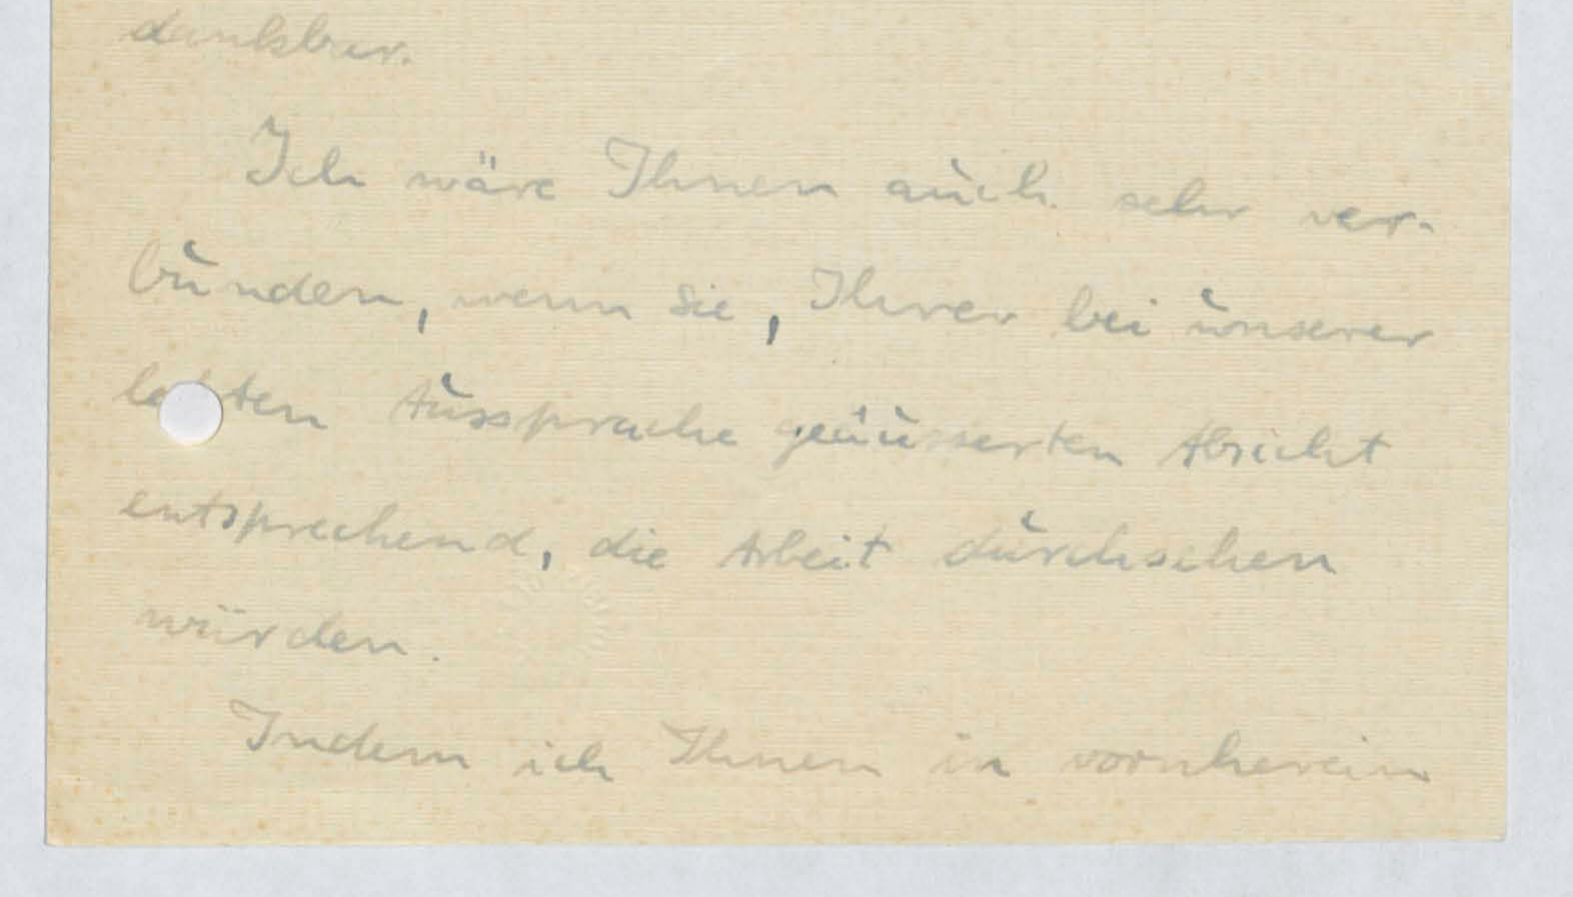 dankbar.
Ich wäre Ihnen auch sehr ver-
bunden, wenn Sie, Ihrer bei unserer
letzten Aussprache geäusserten Absicht
entsprechend, die Arbeit durchsehen
würden.
Indem ich Ihnen in vornherein